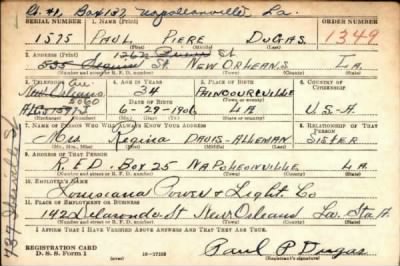 Rt. #1, Box 157 Napoleonville, La.
SERIAL NUMBER 1. NAME (Print) ORDER NUMBER
1575 PAUL PIERE DUGAS 1349
(First) (Middle) (Last)
2. ADDRESS (Print)
1262 St
535 St. NEW ORLEANS LA.
(Number and street or R. F. D. number) (Town) (County) (State)
3. TELEPHONE 4. AGE IN YEARS 5. PLACE OF BIRTH 6. COUNTRY OF CITIZENSHIP
New Orleans 34 PAINCOURTVILLE
DATE OF BIRTH
6-29-1906 LA U.S.A
(Mo.) (Day) (Yr.) (State or country)
7. NAME OF PERSON WHO WILL ALWAYS KNOW YOUR ADDRESS 8. RELATIONSHIP OF THAT PERSON
Mrs Regina DAVIS-ALLEMAN SISTER
(Mr., Mrs., Miss) (First) (Middle) (Last)
9. ADDRESS OF THAT PERSON
R.F.D. Box 25 NAPOLEONVILLE LA.
(Number and street or R. F. D. number) (Town) (County) (State)
10. EMPLOYER'S NAME
Louisiana Power & Light Co
11. PLACE OF EMPLOYMENT OR BUSINESS
142 Delaronde St New Orleans La. Sta. A
(Number and street or R. F. D. number) (Town) (County) (State)
I AFFIRM THAT I HAVE VERIFIED ABOVE ANSWERS AND THAT THEY ARE TRUE.
REGISTRATION CARD
D. S. S. Form 1 (over) 16-17105 Paul P Dugas
(Registrant's signature)